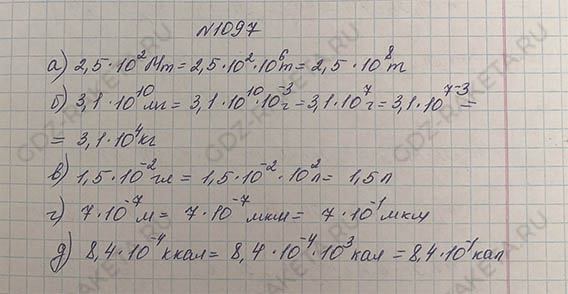 №1097
а) 2,5·10² Мт = 2,5·10²·10⁶ т = 2,5·10⁸ т
б) 3,1·10¹⁰ мг = 3,1·10¹⁰·10⁻³ г = 3,1·10⁷ г = 3,1·10⁷⁻³ =
= 3,1·10⁴ кг
в) 1,5·10⁻² гл = 1,5·10⁻²·10² л = 1,5 л
г) 7·10⁻⁷ м = 7·10⁻⁷ мкм = 7·10⁻¹ мкм
д) 8,4·10⁻⁴ ккал = 8,4·10⁻⁴·10³ кал = 8,4·10⁻¹ кал
GDZ-RAKETA.RU
GDZ-RAKETA.RU
GDZ-RAKETA.RU
GDZ-RAKETA.RU